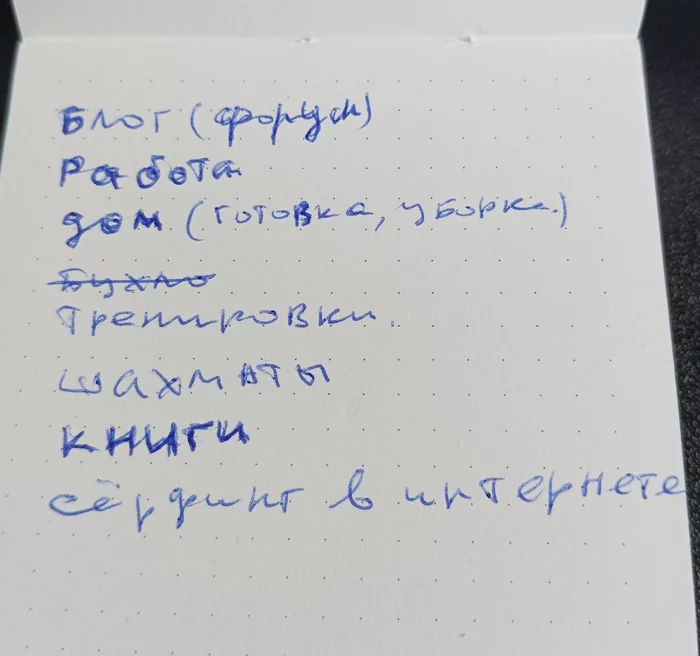 Блог (форум)
Работа
дом (готовка, уборка.)
Бухло
Тренировки.
шахматы
книги
сёрфинг в интернете